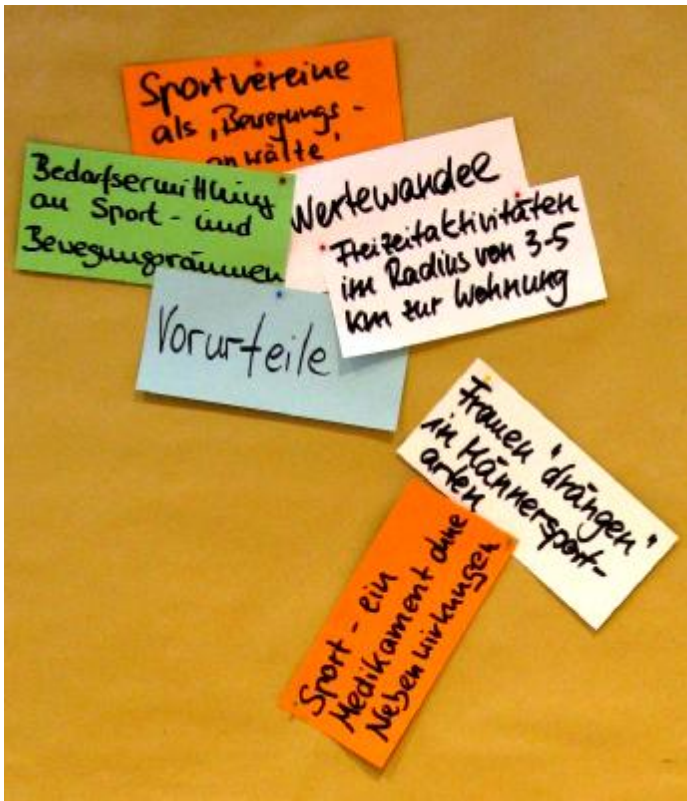 Sportvereine
als 'Bewegungs-
anwälte'
Bedarfsermittlung
an Sport- und
Bewegungsräumen
Wertewandel
Freizeitaktivitäten
im Radius von 3-5
km zur Wohnung
Vorurteile
Frauen "drängen"
in Männersport-
arten
Sport - ein
Medikament ohne
Nebenwirkungen